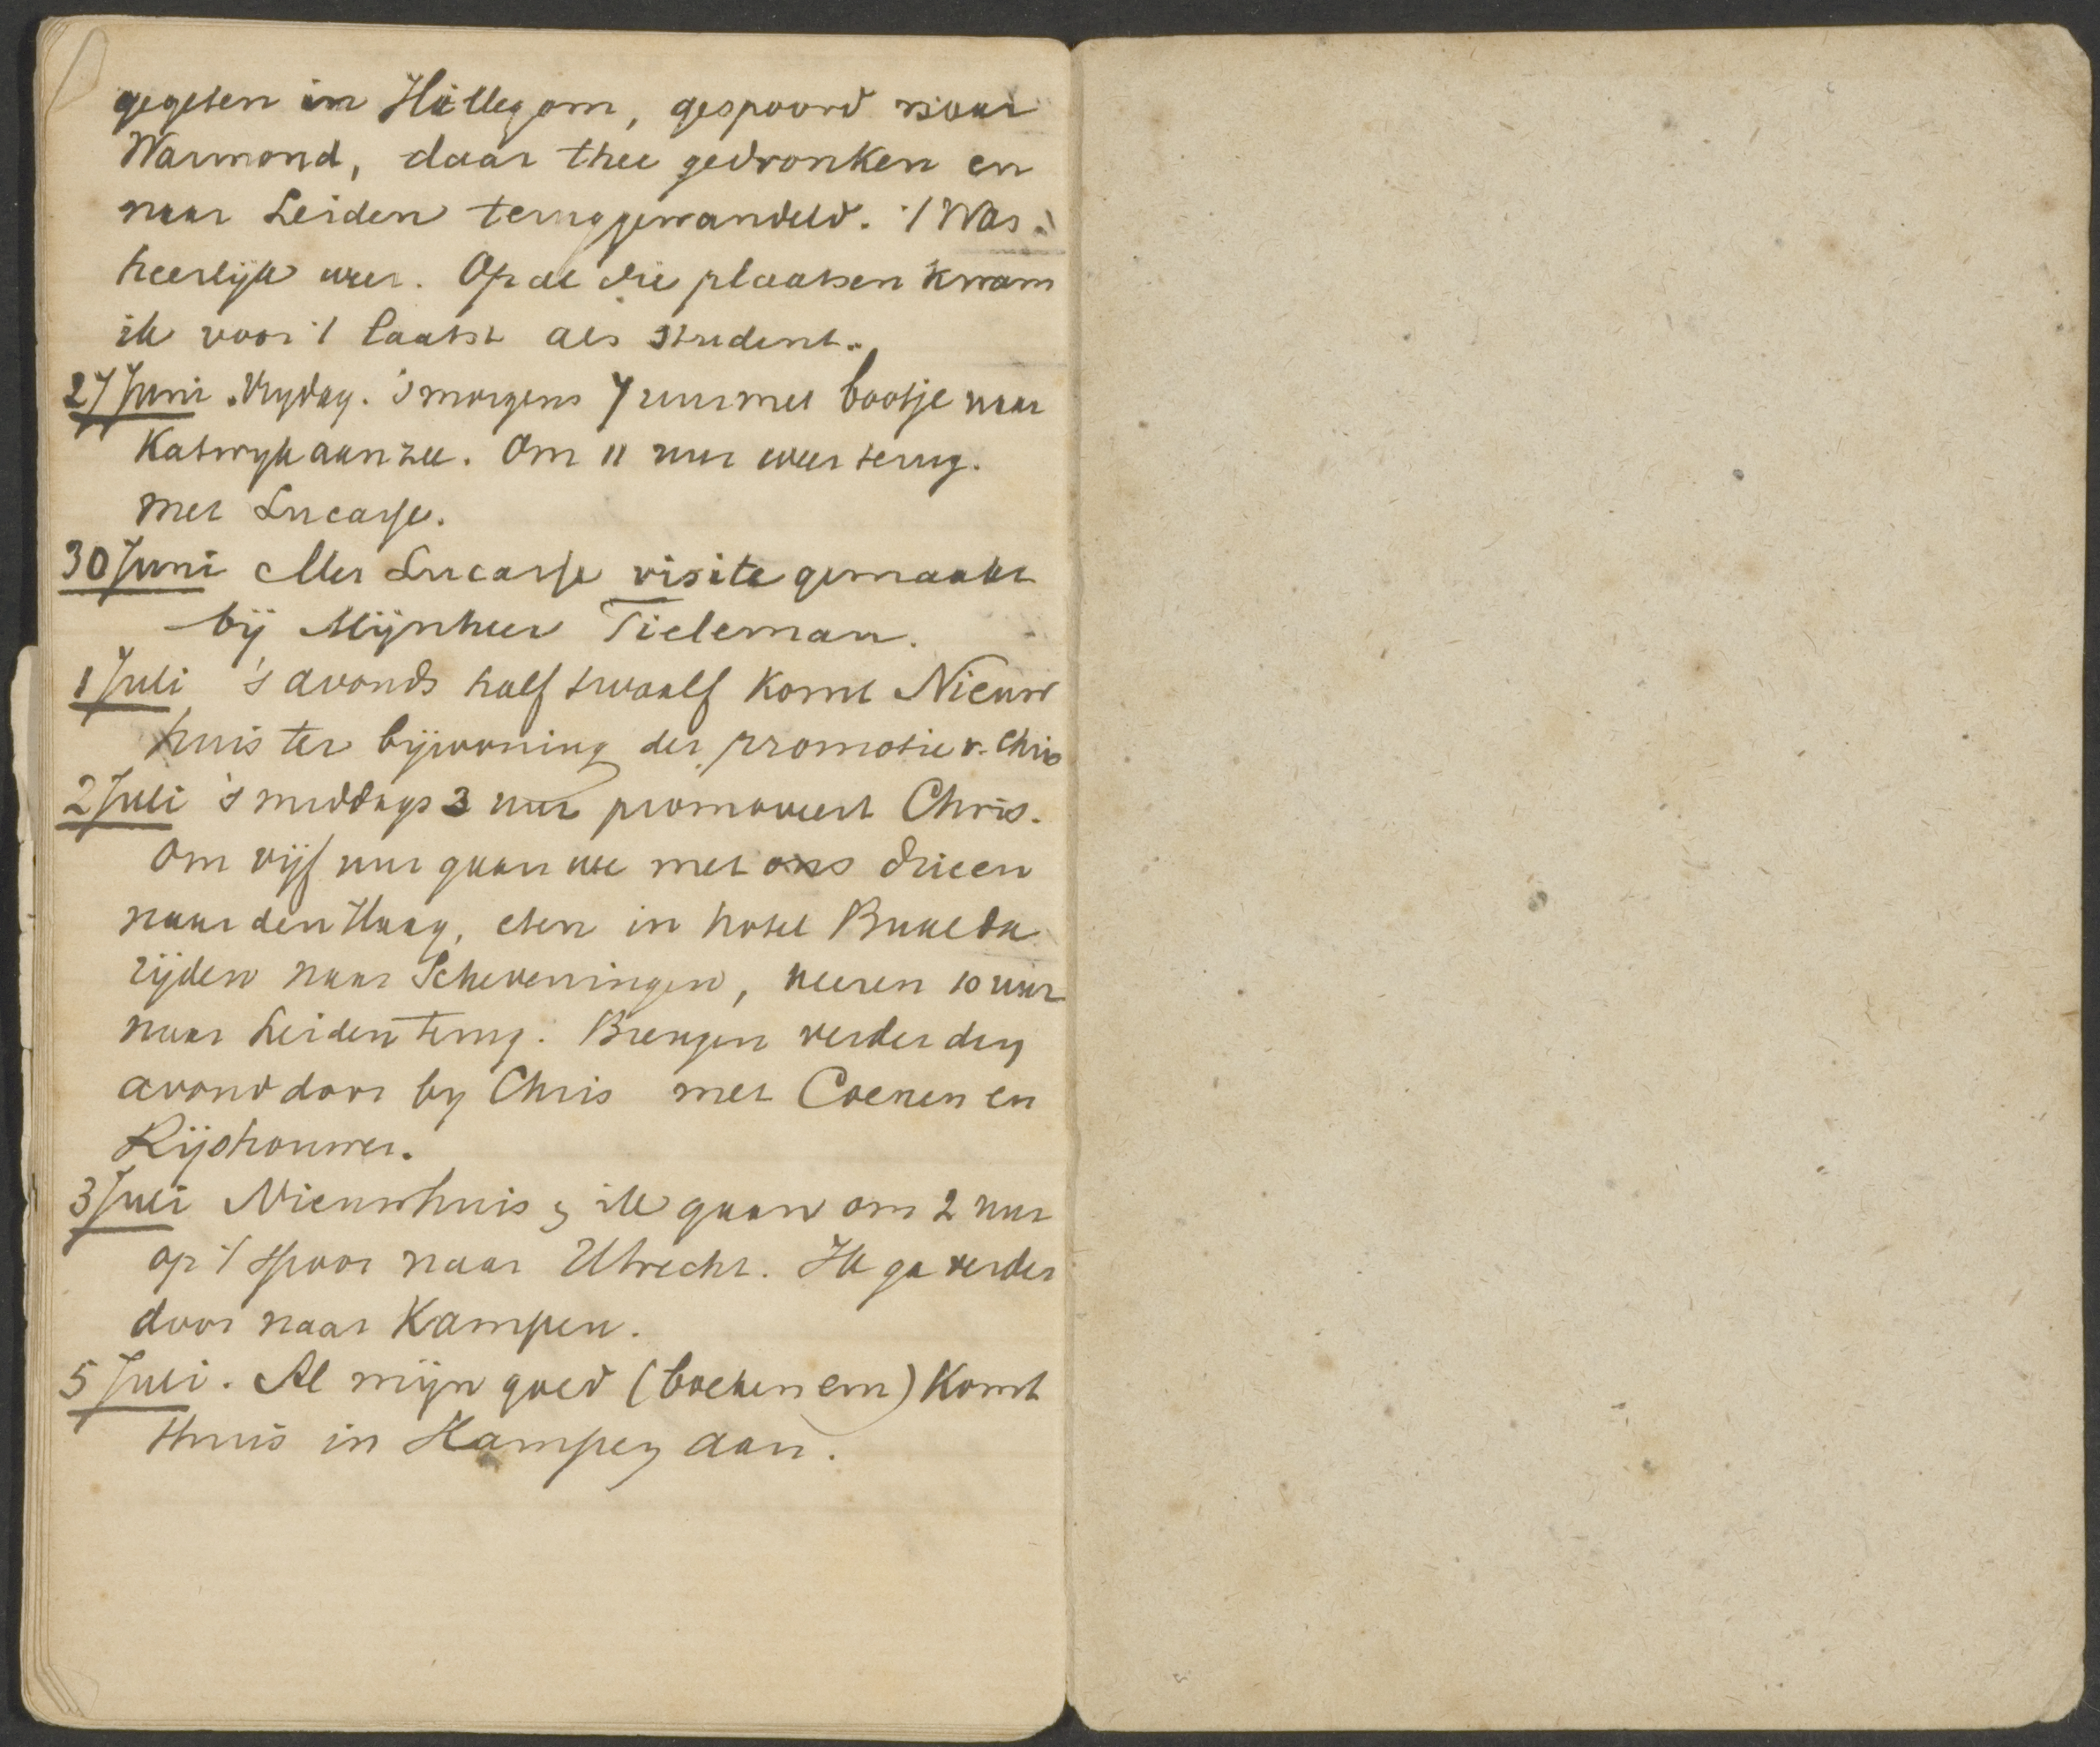 gegeten in Hillegom, gespoord naar
Warmond, daar thee gedronken en
naar Leiden teruggewandeld. 't Was
heerlijk weer. Op al die plaatsen kwam
ik voor 't laatst als student.
27 Juni Vrydag. 's morgens 7 uur met bootje naar
Katwyk aan zee. Om 11 uur weer terug.
met Lucasse.
30 Juni Met Lucasse visite gemaakt
bij Mijnheer Tieleman.
1 Juli 's avonds half twaalf komt Nieuw
huis ter bijwoning der promotie v. Chris
2 Juli 's middags 3 uur promoveert Chris.
Om vijf uur gaan we met ons drieen
naar den Haag, eten in hotel
rijden naar Scheveningen, keeren 10 uur
naar Leiden terug. Brengen verder den
avond door by Chris met Coenen en
Rijshouwer.
3 Juli Nieuwhuis & ik gaan om 2 uur
op 't spoor naar Utrecht. Ik ga verder
door naar Kampen.
5 Juli. Al mijn goed (boeken em) komt
thuis in Kampen aan.